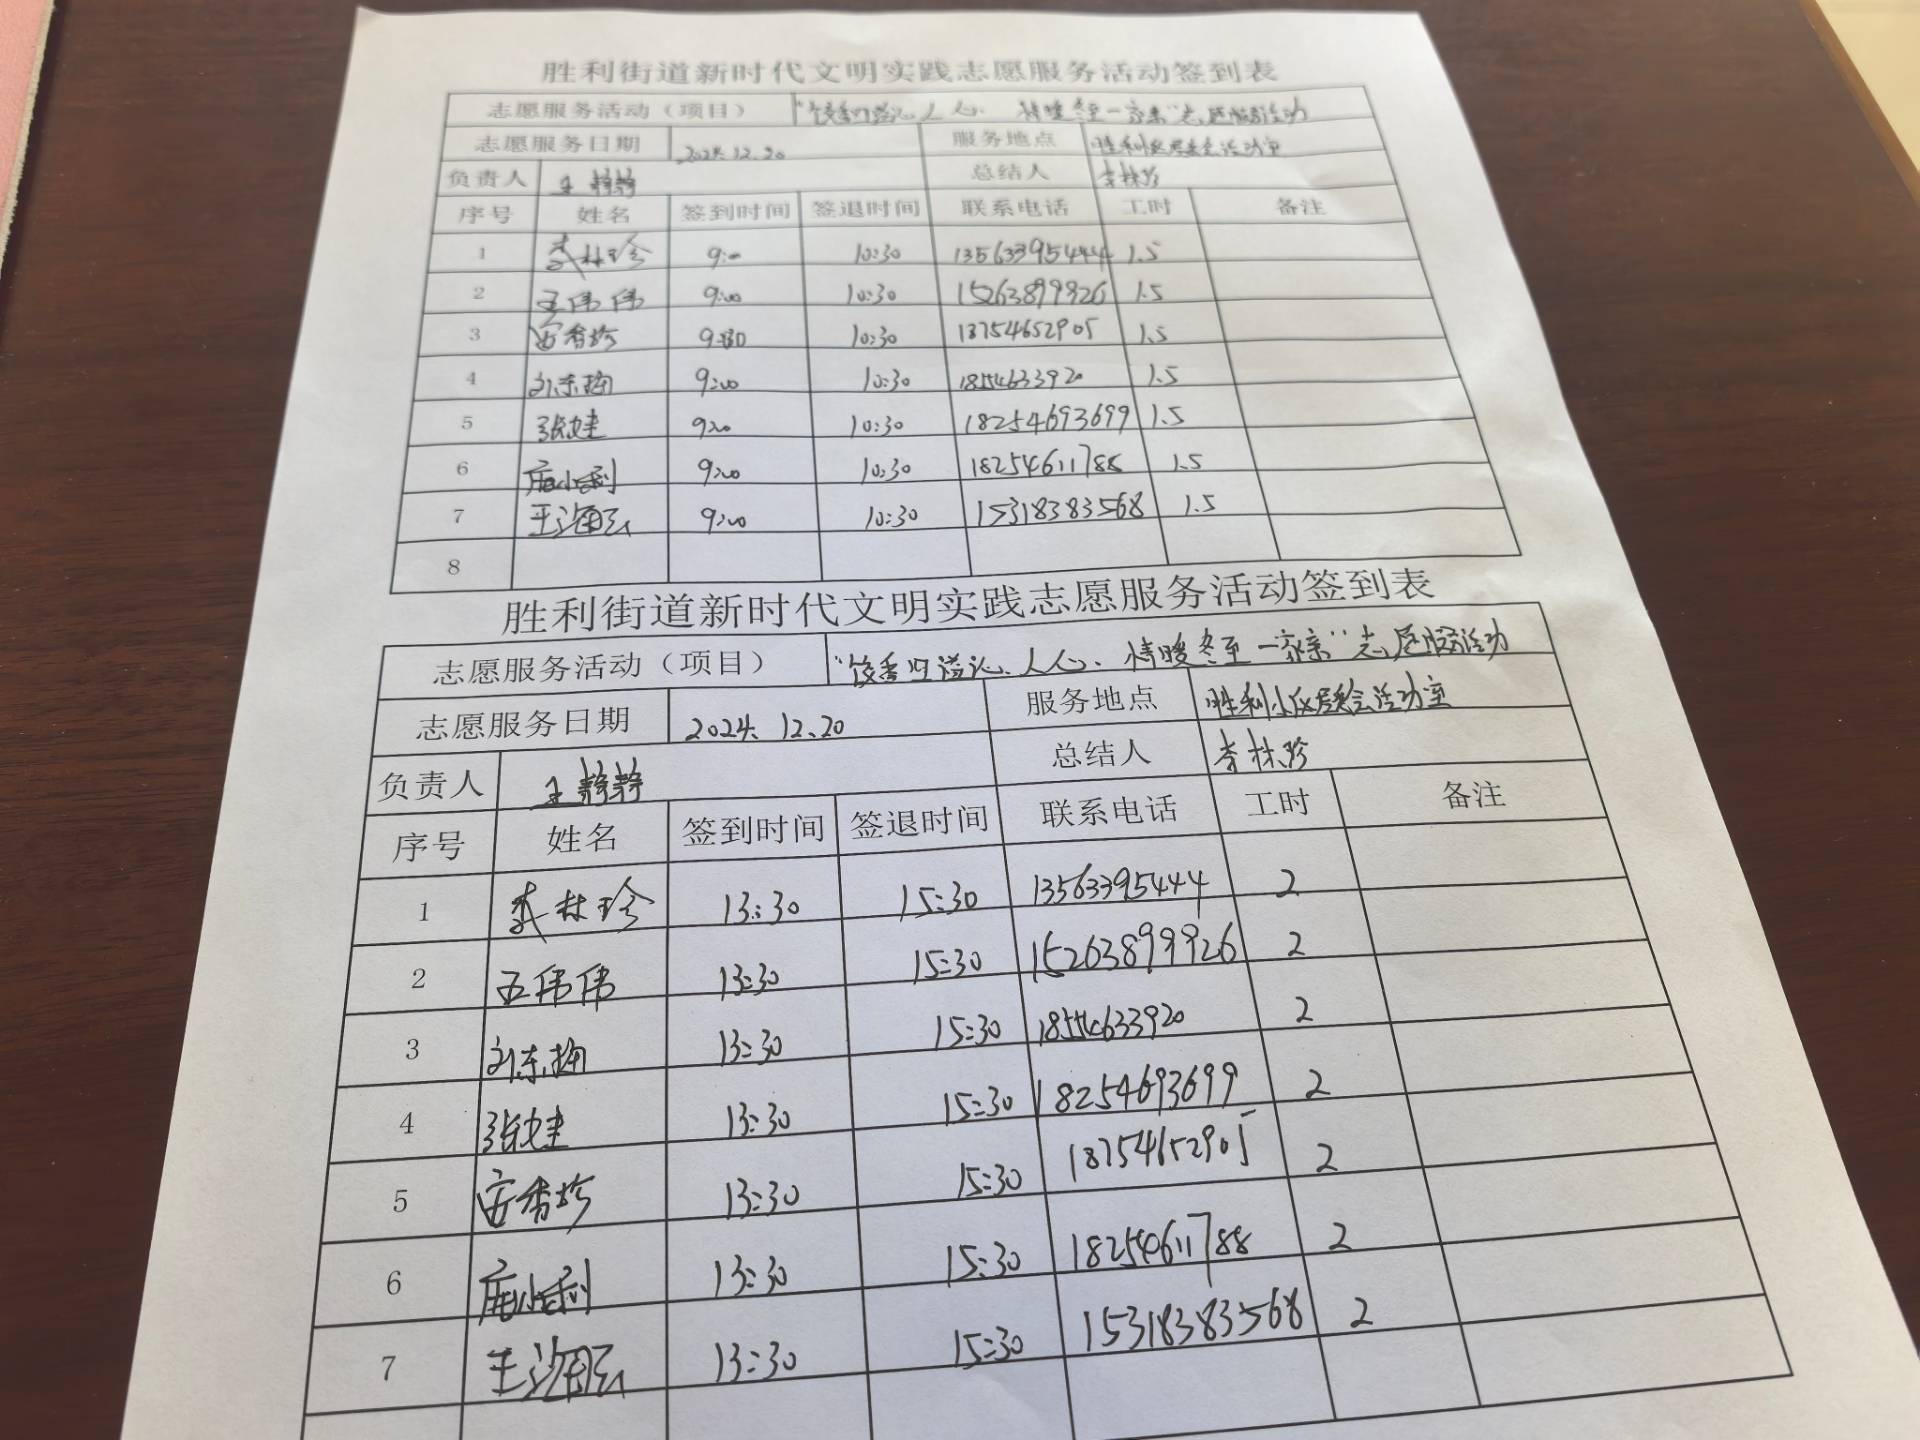 胜利街道新时代文明实践志愿服务活动签到表
志愿服务活动（项目） 情暖冬至一家亲"志愿服务活动
志愿服务日期 2024.12.20 服务地点 胜利社区居委会活动室
负责人 王静静 总结人 李林珍
序号 姓名 签到时间 签退时间 联系电话 工时 备注
1 李林珍 9:00 10:30 13563395444 1.5
2 王伟伟 9:00 10:30 15263899926 1.5
3 安香珍 10:30 18754652905 1.5
4 刘东梅 9:00 10:30 18554633920 1.5
5 张建 9:00 10:30 18254693699 1.5
6 9:00 10:30 18254611788 1.5
7 9:00 10:30 15318383568 1.5
8
胜利街道新时代文明实践志愿服务活动签到表
志愿服务活动（项目） 人人心、情暖冬至一家亲"志愿服务活动
志愿服务日期 2024.12.20 服务地点 胜利社区居委会活动室
负责人 王静静 总结人 李林珍
序号 姓名 签到时间 签退时间 联系电话 工时 备注
1 李林珍 13:30 15:30 13563395444 2
2 王伟伟 13:30 15:30 15263899926 2
3 刘东梅 13:30 15:30 18554633920 2
4 张建 13:30 15:30 18254693699 2
5 安香珍 13:30 15:30 18754652905 2
6 13:30 15:30 18254611788 2
7 13:30 15:30 15318383568 2